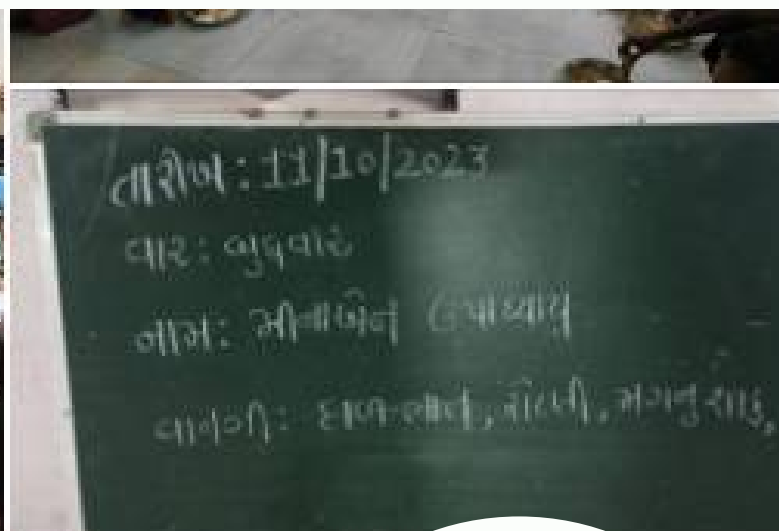 તારીખ: 11/10/2023
વાર: બુદવાર
નામ: મીનાબેન ઉપાધ્યાય
વાનગી: દાળ-ભાત, રોટલી, મગનુ શાક,